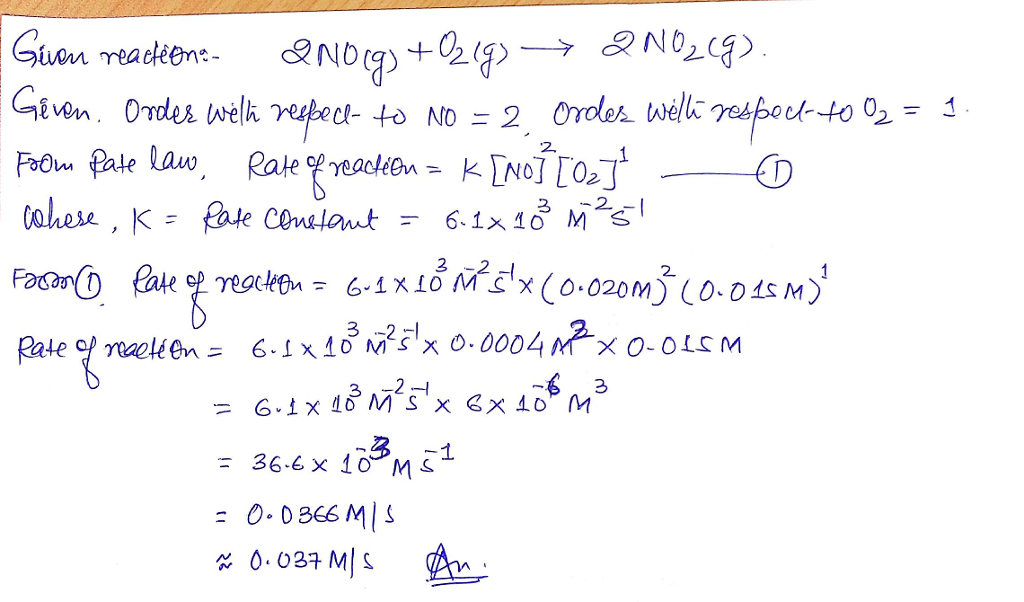 Given reaction:- 2NO(g) + O₂(g) → 2NO₂(g).
Given. Order with respect to NO = 2, Order with respect to O₂ = 1.
From Rate law, Rate of reaction = K [NO]² [O₂]¹ —— ①
where, K = Rate constant = 6.1 x 10³ M⁻² S⁻¹
From ① Rate of reaction = 6.1 x 10³ M⁻² S⁻¹ x (0.020M)² (0.015M)¹
Rate of reaction = 6.1 x 10³ M⁻² S⁻¹ x 0.0004 M² x 0.015 M
= 6.1 x 10³ M⁻² S⁻¹ x 6 x 10⁻⁶ M³
= 36.6 x 10⁻³ M S⁻¹
= 0.0366 M/S
≈ 0.037 M/S An.